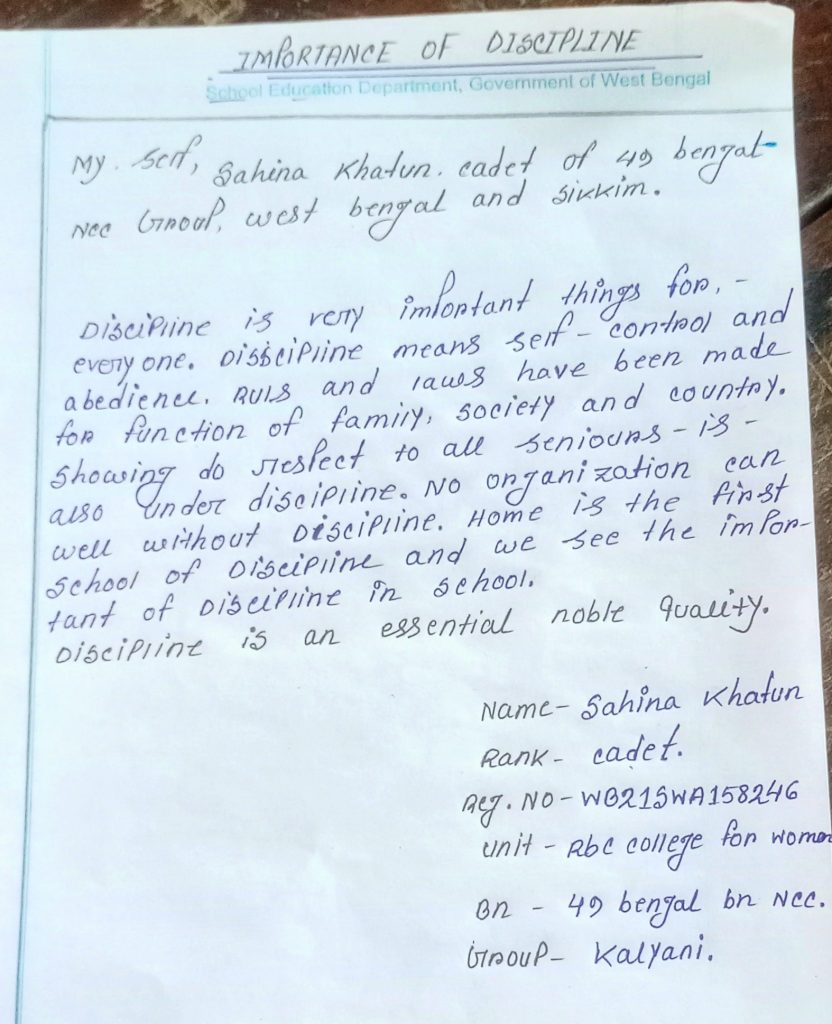 IMPORTANCE OF DISCIPLINE
School Education Department, Government of West Bengal
My. Self, Sahina Khatun. cadet of 49 bengal-
NCC Group, west bengal and sikkim.
Discipline is very important things for, -
every one. Disscipline means self - control and
abedience. Ruls and laws have been made
for function of family, society and country.
Showing do respect to all seniours - is -
also under discipline. No organization can
well without Discipline. Home is the first
School of Discipline and we see the impor-
tant of Discipline in school.
Discipline is an essential noble quality.
Name - Sahina Khatun
Rank - cadet.
Reg. No - WB21SWA158246
Unit - Rbc college for women
Bn - 49 bengal bn Ncc.
Group - Kalyani.